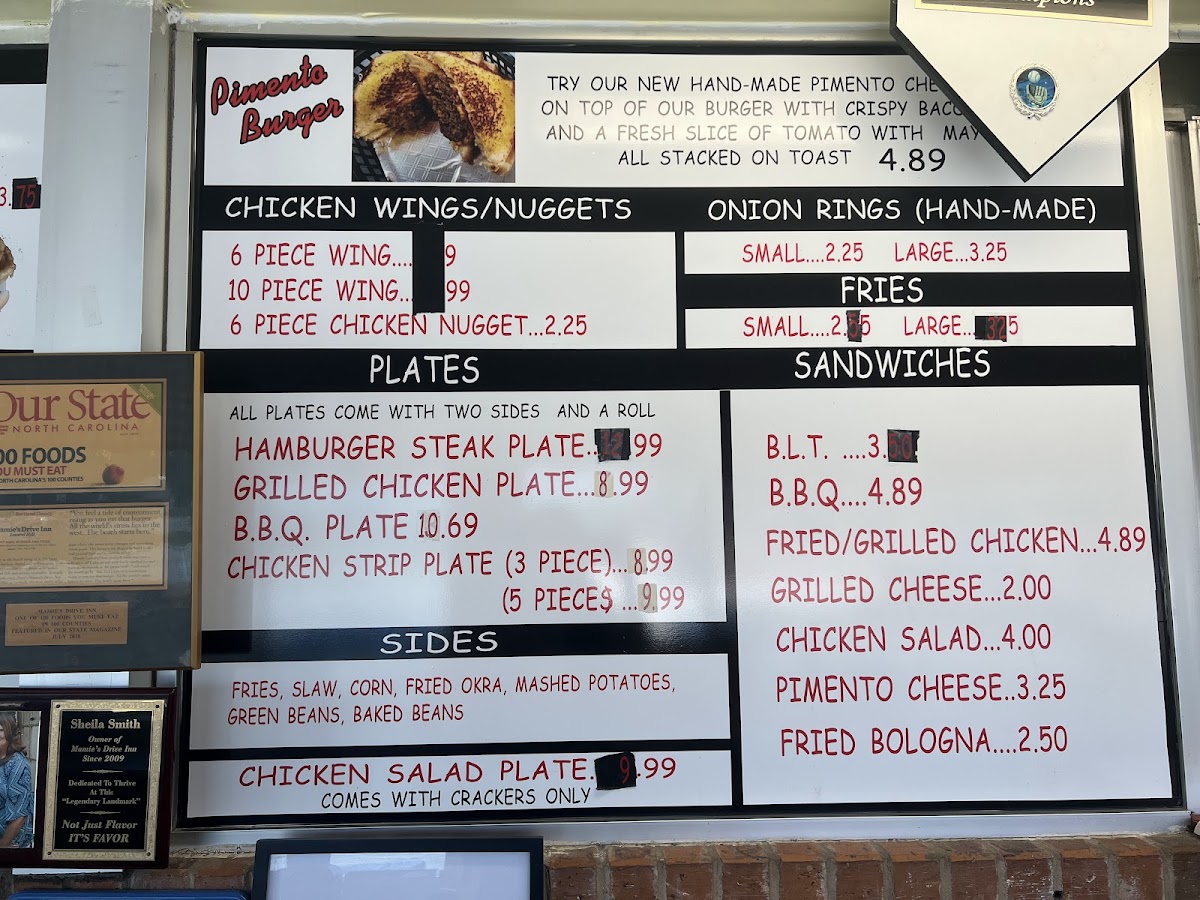 Champions
Pimento
Burger
TRY OUR NEW HAND-MADE PIMENTO
ON TOP OF OUR BURGER WITH CRISPY
AND A FRESH SLICE OF TOMATO WITH
ALL STACKED ON TOAST 4.89
CHICKEN WINGS/NUGGETS
6 PIECE WING.... 9
10 PIECE WING... 99
6 PIECE CHICKEN NUGGET...2.25
ONION RINGS (HAND-MADE)
SMALL....2.25 LARGE...3.25
FRIES
SMALL....2. 5 LARGE... 325
PLATES
ALL PLATES COME WITH TWO SIDES AND A ROLL
HAMBURGER STEAK PLATE..12.99
GRILLED CHICKEN PLATE...8.99
B.B.Q. PLATE 10.69
CHICKEN STRIP PLATE (3 PIECE)...8.99
(5 PIECE$ ...9.99
SIDES
FRIES, SLAW, CORN, FRIED OKRA, MASHED POTATOES,
GREEN BEANS, BAKED BEANS
CHICKEN SALAD PLATE. 9.99
COMES WITH CRACKERS ONLY
SANDWICHES
B.L.T. ....3.50
B.B.Q....4.89
FRIED/GRILLED CHICKEN...4.89
GRILLED CHEESE...2.00
CHICKEN SALAD...4.00
PIMENTO CHEESE..3.25
FRIED BOLOGNA....2.50
3.75
Our State
NORTH CAROLINA
00 FOODS
OU MUST EAT
NORTH CAROLINA'S 100 COUNTIES
Mamie's Drive Inn
MAMIE'S DRIVE INN
ONE OF 100 FOODS YOU MUST EAT
IN 100 COUNTIES
FEATURED IN OUR STATE MAGAZINE
Sheila Smith
Owner of
Mamie's Drive Inn
Since 2009
Dedicated To Thrive
At This
"Legendary Landmark"
Not Just Flavor
IT'S FAVOR